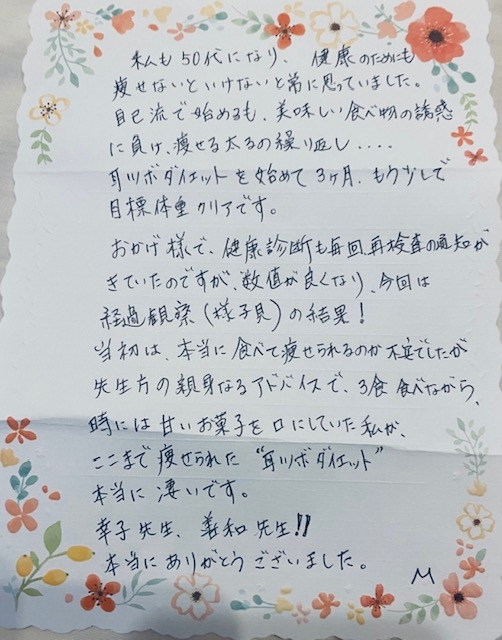 私も50代になり、健康のためにも
痩せないといけないと常に思っていました。
自己流で始めるも、美味しい食べ物の誘惑
に負け、痩せる太るの繰り返し....
耳ツボダイエットを始めて3ヶ月、もう少しで
目標体重クリアです。
おかげ様で、健康診断も毎回再検査の通知が
きていたのですが、数値が良くなり、今回は
経過観察(様子見)の結果!
当初は、本当に食べて痩せられるのか不安でしたが
先生方の親身なるアドバイスで、3食食べながら、
時には甘いお菓子を口にしていた私が、
ここまで痩せられた“耳ツボダイエット”
本当に凄いです。
幸子先生、義和先生!!
本当にありがとうございました。
M